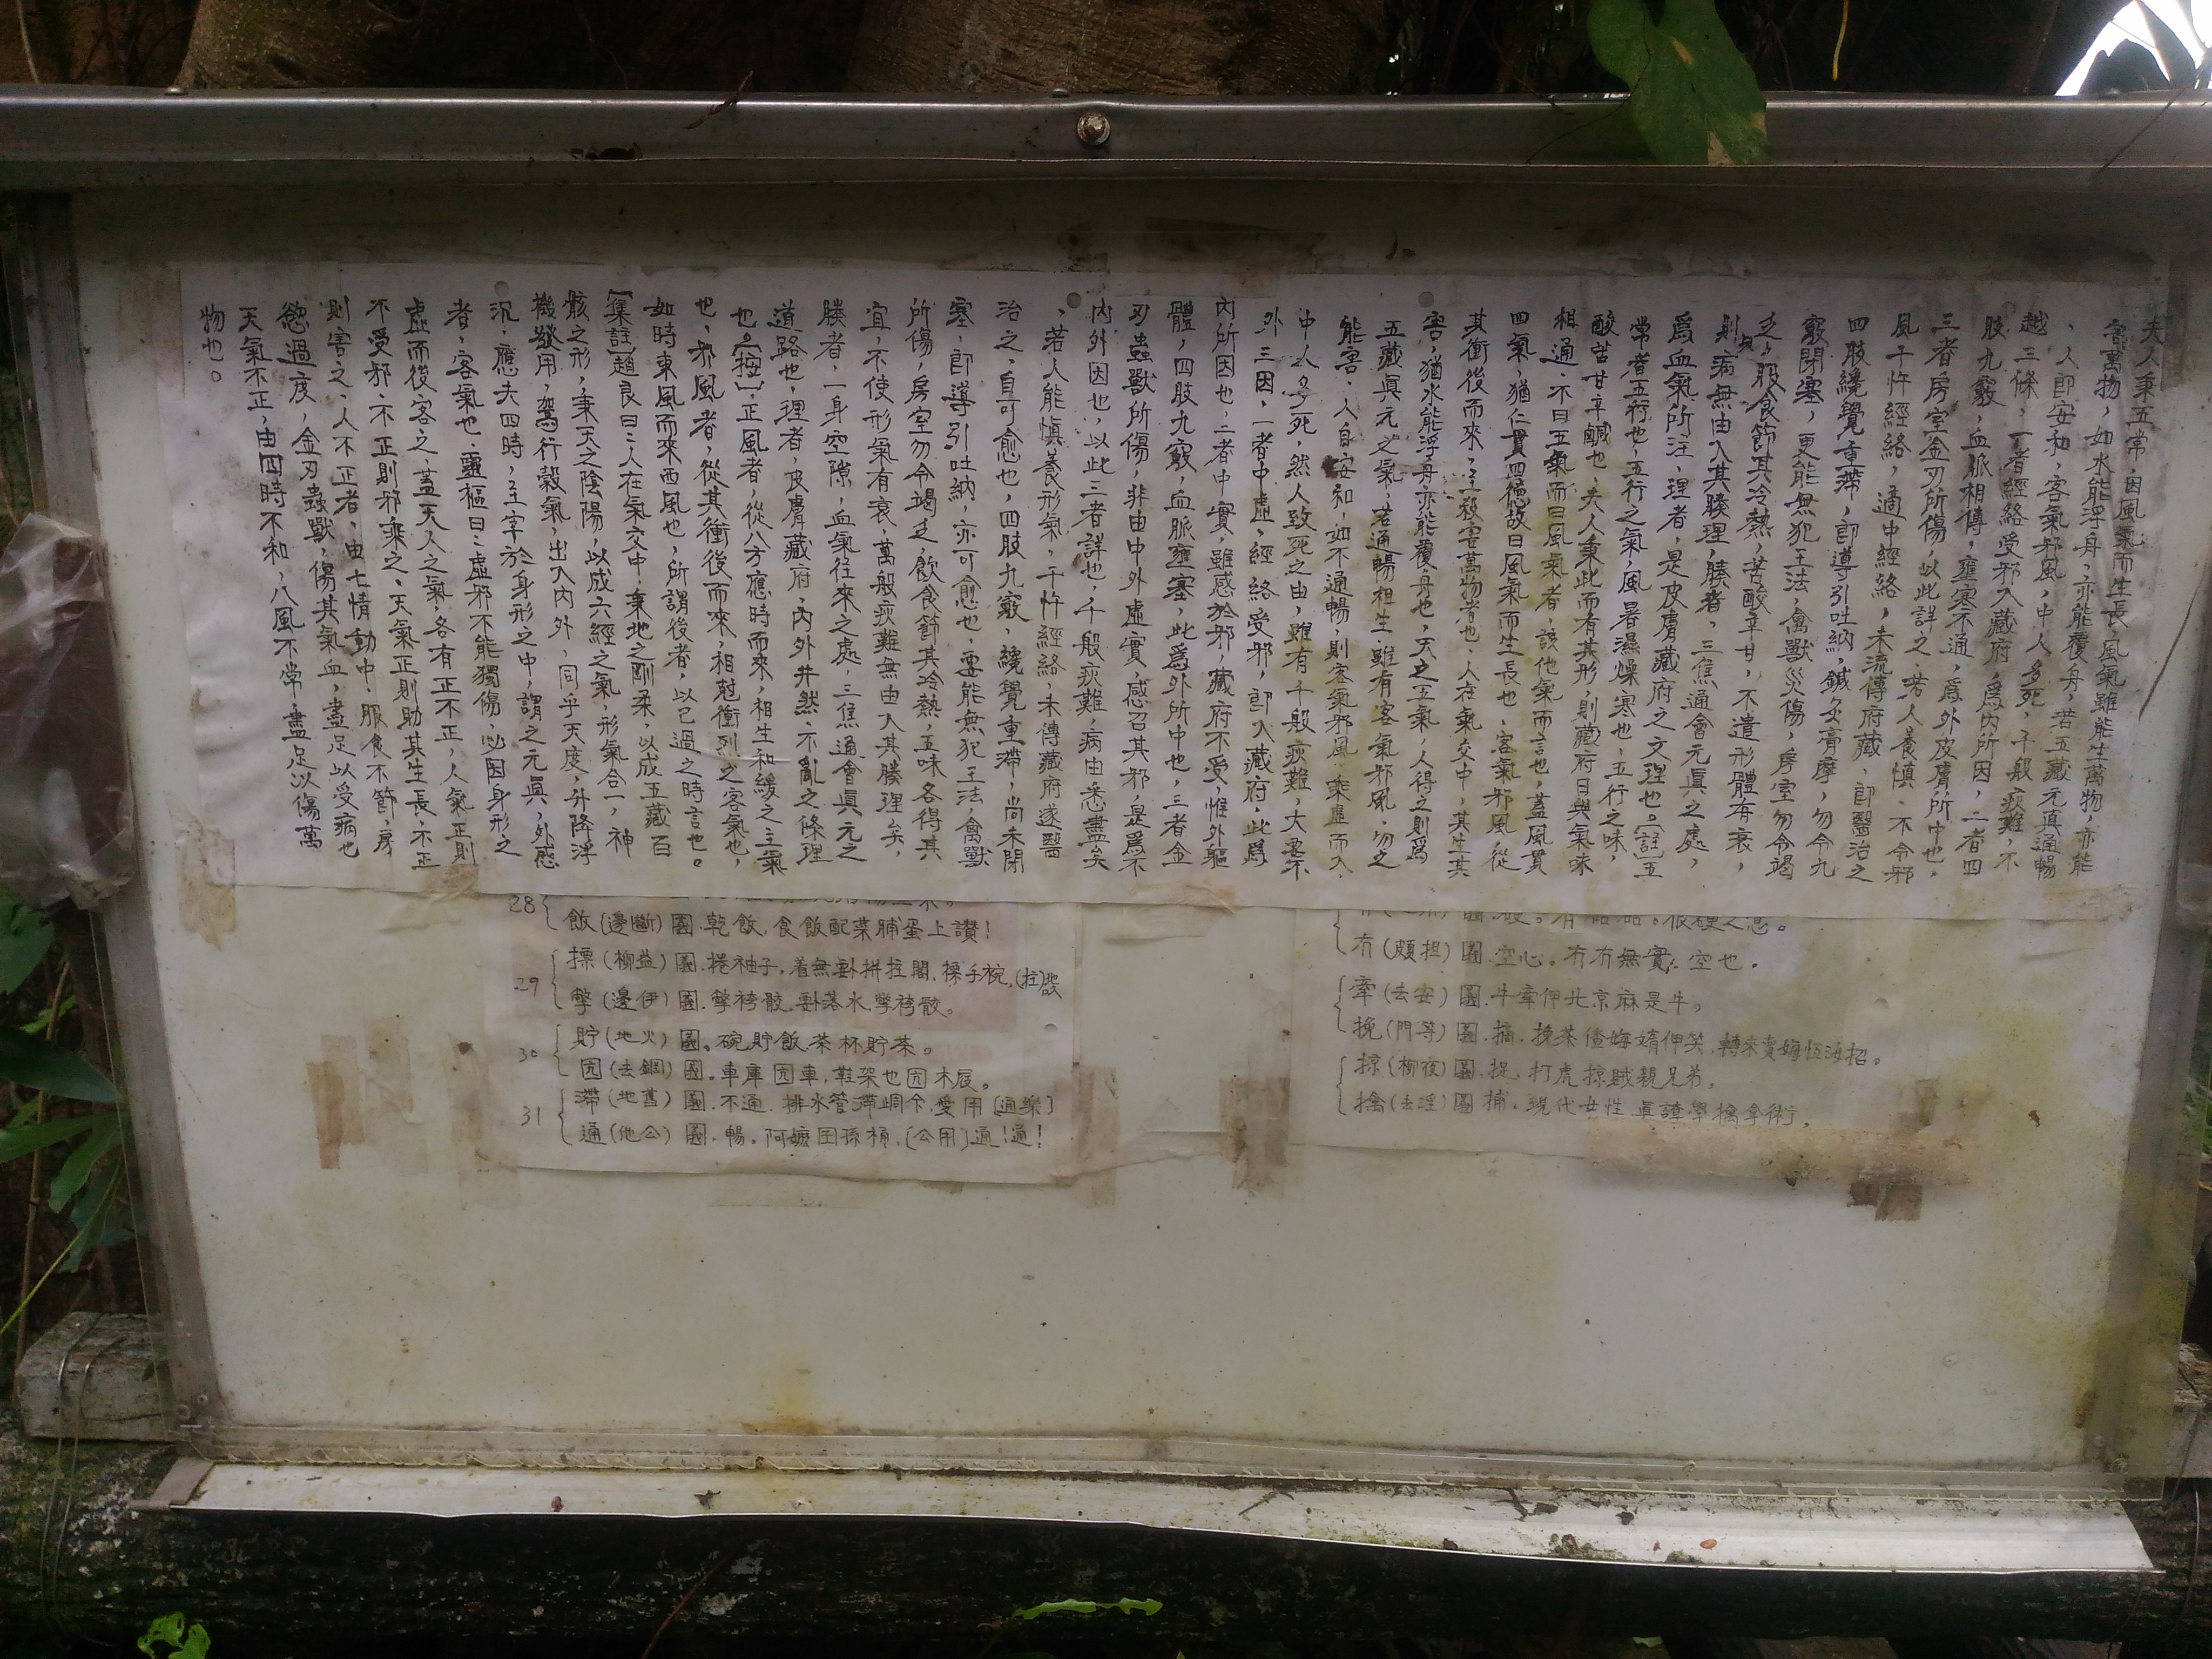 夫人秉五常，因風氣而生長，風氣雖能生萬物，亦能
害萬物，如水能浮舟，亦能覆舟，若五藏元真通暢
，人即安和，客氣邪風，中人多死，千般疢難，不
越三條，一者經絡受邪入藏府，為內所因，二者四
肢九竅，血脈相傳，壅塞不通，為外皮膚所中也，
三者房室金刃所傷，以此詳之，若人養慎，不令邪
風干忤經絡，適中經絡，未流傳府藏，即醫治之
四肢纔覺重滯，即導引吐納，鍼灸膏摩，勿令九
竅閉塞，更能無犯王法，禽獸災傷，房室勿令竭
乏，服食節其冷熱，苦酸辛甘，不遺形體有衰，
則病無由入其腠理，腠者，三焦通會元真之處，
為血氣所注，理者，是皮膚藏府之文理也。〔註〕五
常者五行也，五行之氣，風暑濕燥寒也，五行之味，
酸苦甘辛鹹也，夫人秉此而有其形，則藏府日與氣味
相通，不曰五氣而曰風氣者，該他氣而言也，蓋風貫
四氣，猶仁貫四德故曰風氣而生長也，客氣邪風，從
其衝後而來，主殺害萬物者也，人在氣交中，其生其
害，猶水能浮舟亦能覆舟也，天之五氣，人得之則為
五藏真元之氣，若通暢相生，雖有客氣邪風，勿之
能害，人自安和，如不通暢，則客氣邪風，乘虛而入，
中人多死，然人致死之由，雖有千般疢難，大要不
外三因，一者中虛，經絡受邪，即入藏府，此為
內所因也，二者中實，雖感於邪，藏府不受，惟外軀
體，四肢九竅，血脈壅塞，此為外所中也，三者金
刃蟲獸所傷，非由中外虛實，感召其邪，是為不
內外因也，以此三者詳也，千般疢難，病由悉盡矣
，若人能慎養形氣，干忤經絡，未傳藏府遂醫
治之，自可愈也，四肢九竅，纔覺重滯，尚未閉
塞，即導引吐納，亦可愈也，要能無犯王法，禽獸
所傷，房室勿令竭乏，飲食節其冷熱，五味各得其
宜，不使形氣有衰，萬般疢難無由入其腠理矣，
腠者，一身空隙，血氣往來之處，三焦通會真元之
道路也，理者，皮膚藏府，內外井然，不亂之條理
也。〔按〕，正風者，從八方應時而來，相生和緩之主氣
也，邪風者，從其衝後而來，相尅衝烈之客氣也，
如時東風而來西風也，所謂後者，以已過之時言也。
〔集註〕趙良曰：人在氣交中，秉地之剛柔，以成五藏百
骸之形，秉天之陰陽，以成六經之氣，形氣合一，神
機發用，駕行穀氣，出入內外，同乎天度，升降浮
沉，應夫四時，主宰於身形之中，謂之元真，外感
者，客氣也，靈樞曰：虛邪不能獨傷，必因身形之
虛而後客之，蓋天人之氣，各有正不正，人氣正則
不受邪，不正則邪乘之，天氣正則助其生長，不正
則害之，人不正者，由七情動中，服食不節，房
慾過度，金刃蟲獸，傷其氣血，盡足以受病也
天氣不正，由四時不和，八風不常，盡足以傷萬
物也。
28
飯（邊斷）園．乾飯，食飯配菜脯蛋上讚！
29
撩（柳益）園．捲袖子，着無
擎（邊伊）園．擎袴骹，卦落水，擎袴骹。
30
貯（地火）園。碗貯飯，茶杯貯茶。
囥（去鋼）園．車庫囥車，鞋架也囥木屐。
31
滯（地舊）園．不通．排水管滯
通（他公）園．暢。阿嬤
冇（頗担）園．空心。冇冇無實，空也．
牽（去安）園．牛牽伊北京麻是牛。
挽（門等）園．摘．挽茶
掠（柳夜）園．捉．打虎掠賊親兄弟．
擒（去淫）園捕．現代女性真諳學擒拿術．